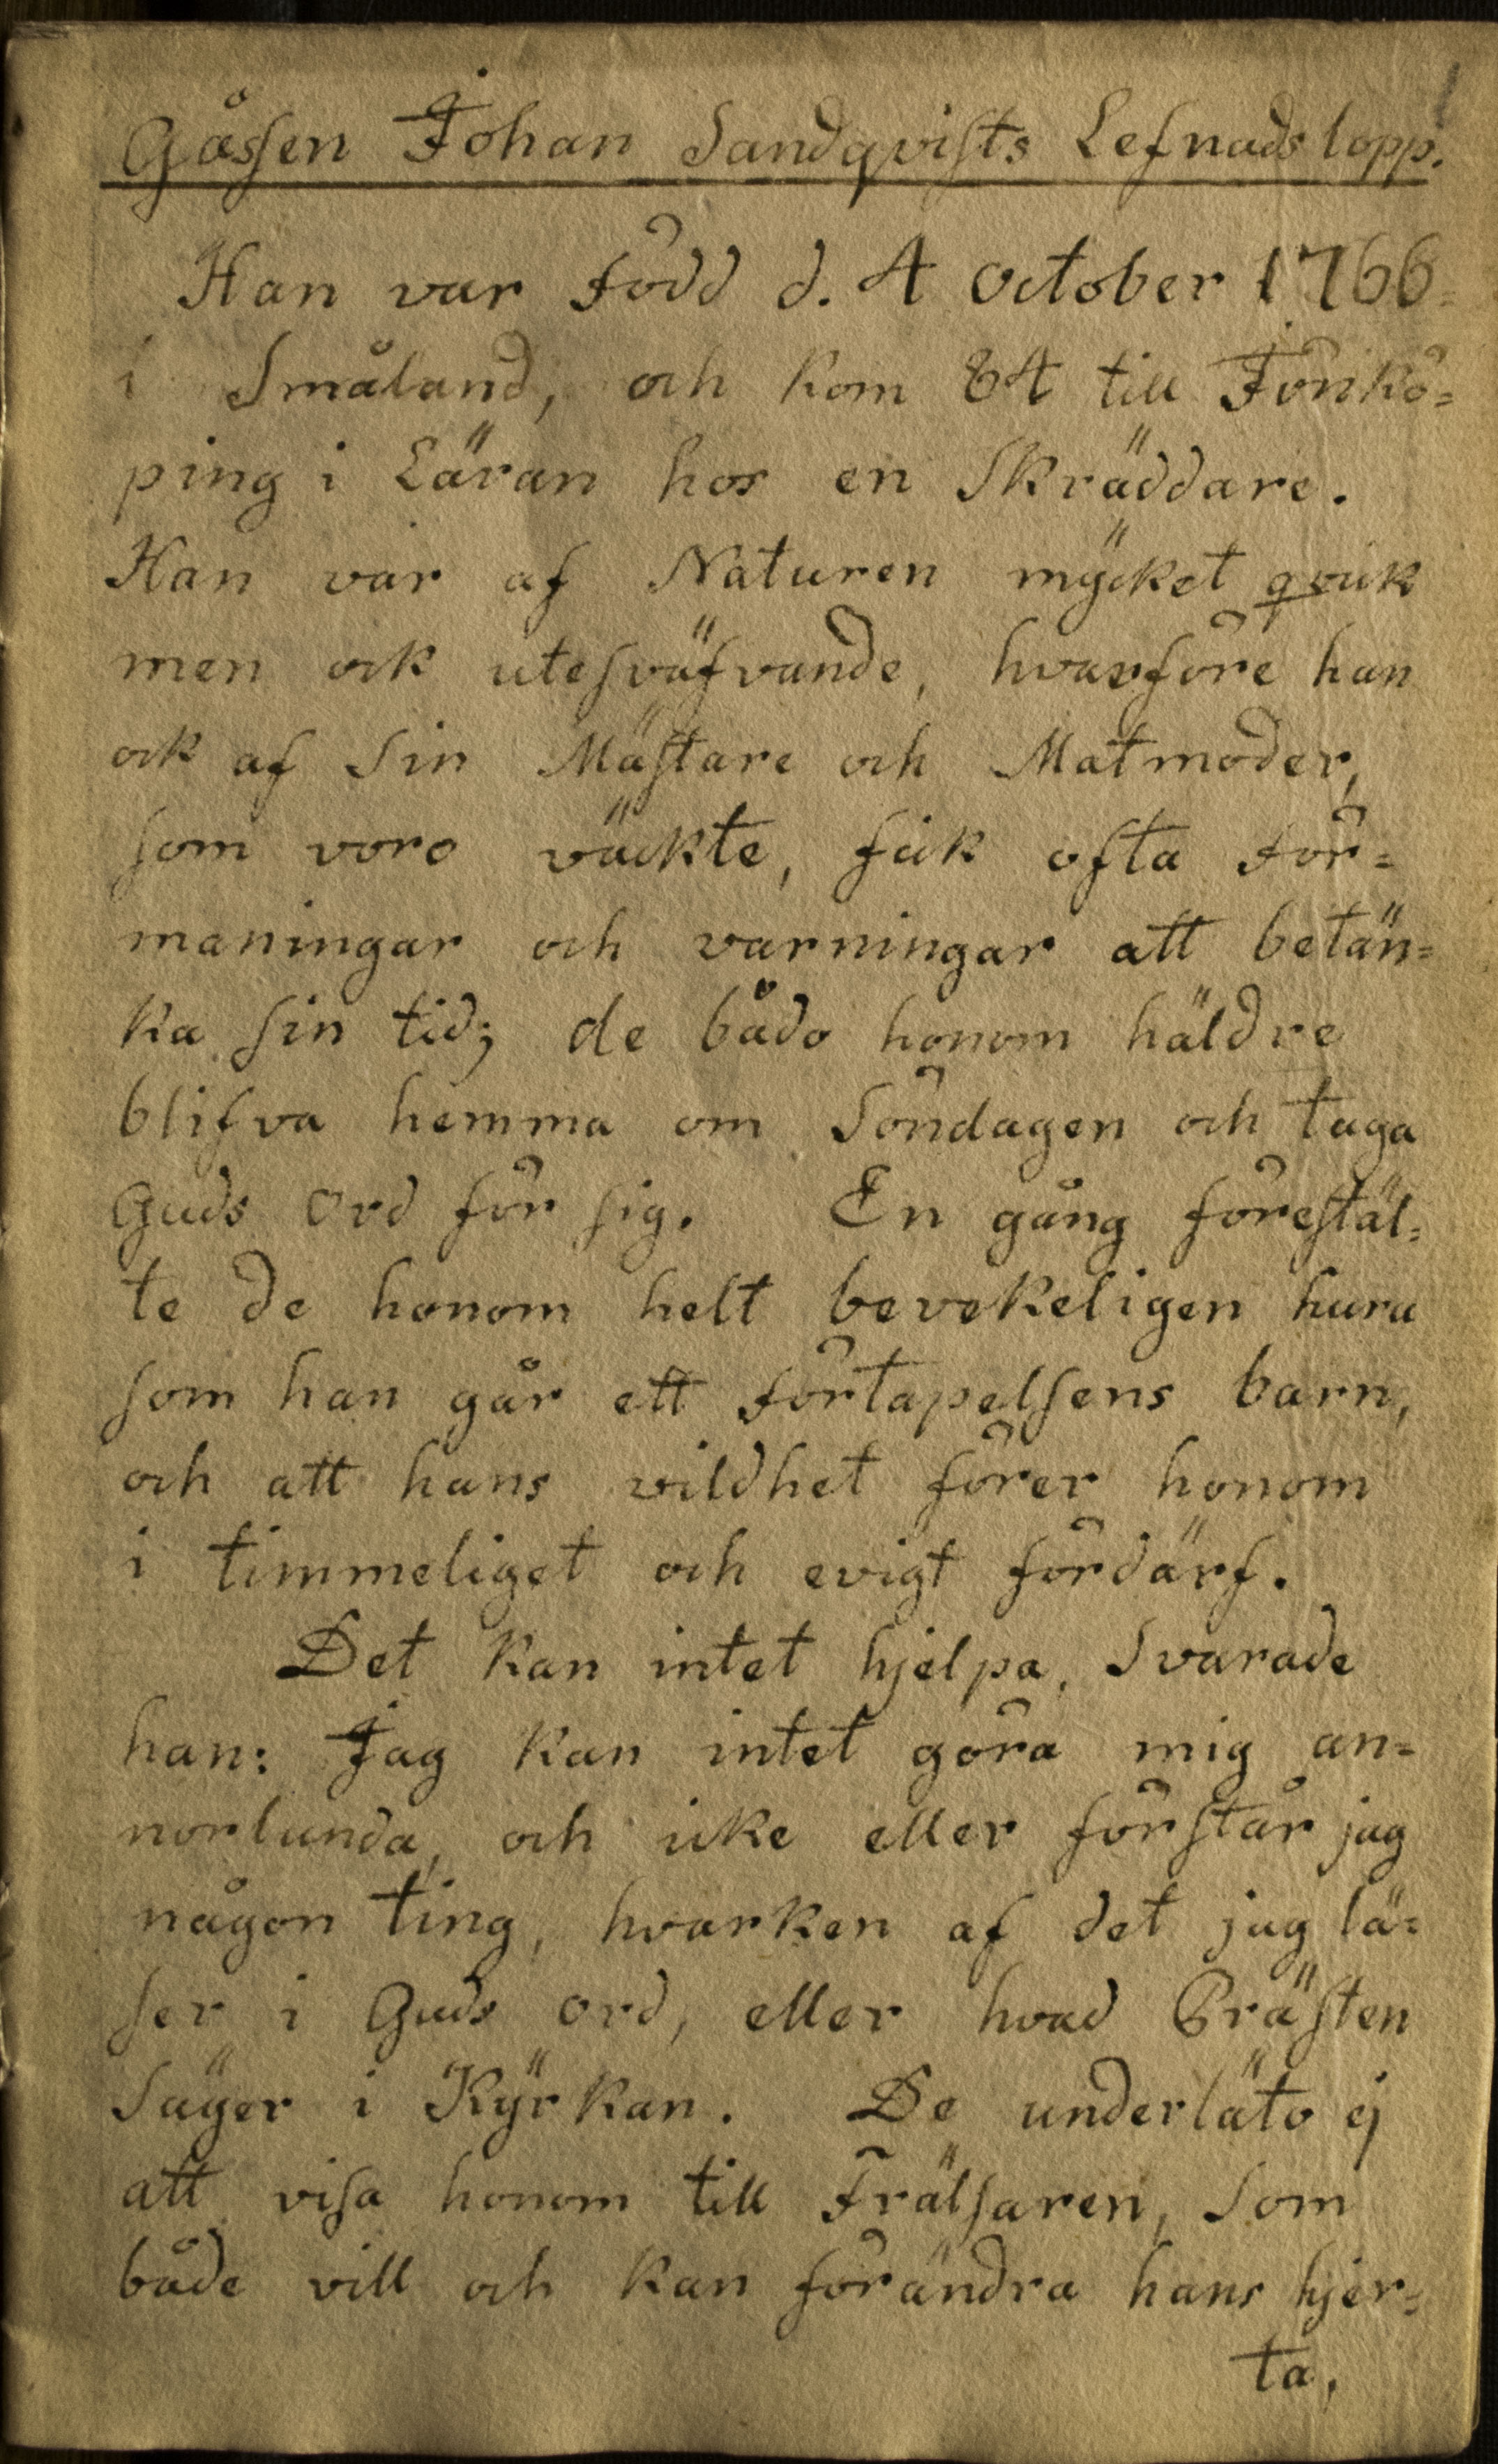 Gåssen Johan Sandqvists Lefnads lopp.
Han var född d. 4 October 1766
i Småland, och kom 84 till Jönkö=
ping i Läran hos en Skräddare.
Han var af Naturen mÿcket qvick
men ock utesväfvande, hvarföre han
ock af Sin Mästare och Matmoder,
som voro väckte, fick ofta för=
maningar och varningar att betän=
ka sin tid; de bådo honom häldre
blifva hemma om Söndagen och taga
Guds Ord för sig. En gång förestäl=
te de honom helt bevekeligen huru
som han går ett förtapelsens barn,
och att hans vildhet förer honom
i timmeliget och evigt fördärf.
Det kan intet hjelpa, Svarade
han: Jag kan intet göra mig an=
norlunda, och icke eller förstår jag
någon ting, hvarken af det jag lä=
ser i Guds ord, eller hvad Prästen
Säger i Kÿrkan. De underläto ej
att visa honom till Frälsaren, Som
både vill och kan förändra hans hjer=
ta,